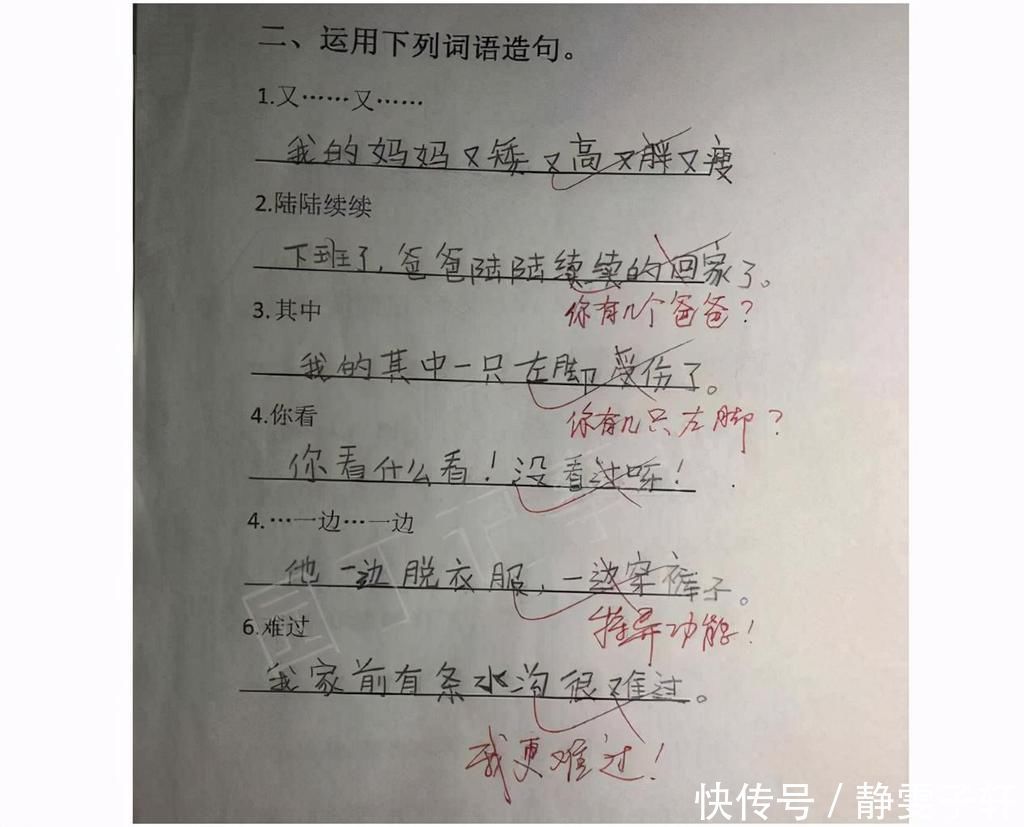 二、运用下列词语造句。
1.又……又……
我的妈妈又矮又高又胖又瘦
2.陆陆续续
下班了，爸爸陆陆续续的回家了。
你有几个爸爸？
3.其中
我的其中一只左脚受伤了。
你有几只左脚？
4.你看
你看什么看！没看过啊！
4.…一边…一边
他一边脱衣服，一边穿裤子。
特异功能！
6.难过
我家前有条水沟很难过。
我更难过！
快传号／静雯子轩